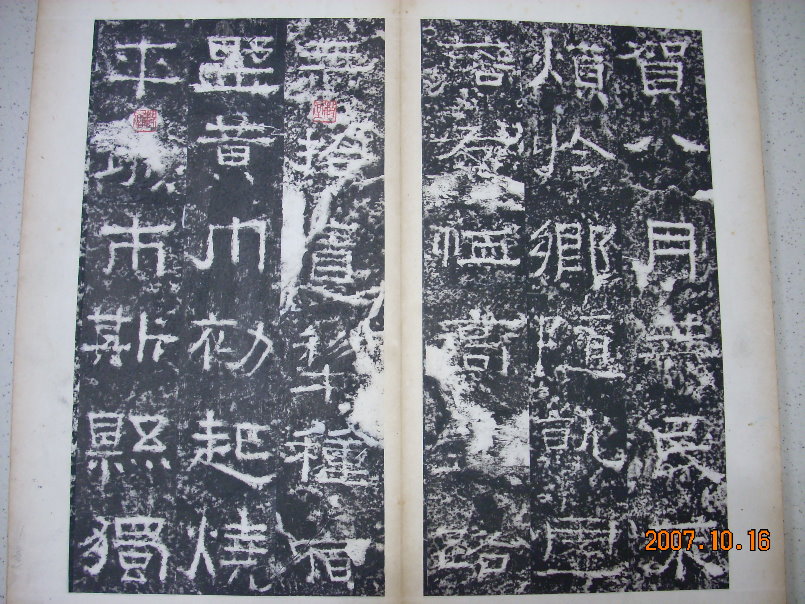 賀八月筭民不
煩於鄉隨就虛
落存恤高路
無拾遺犁種宿
壄黃巾初起燒
平城市斯縣獨
2007.10.16